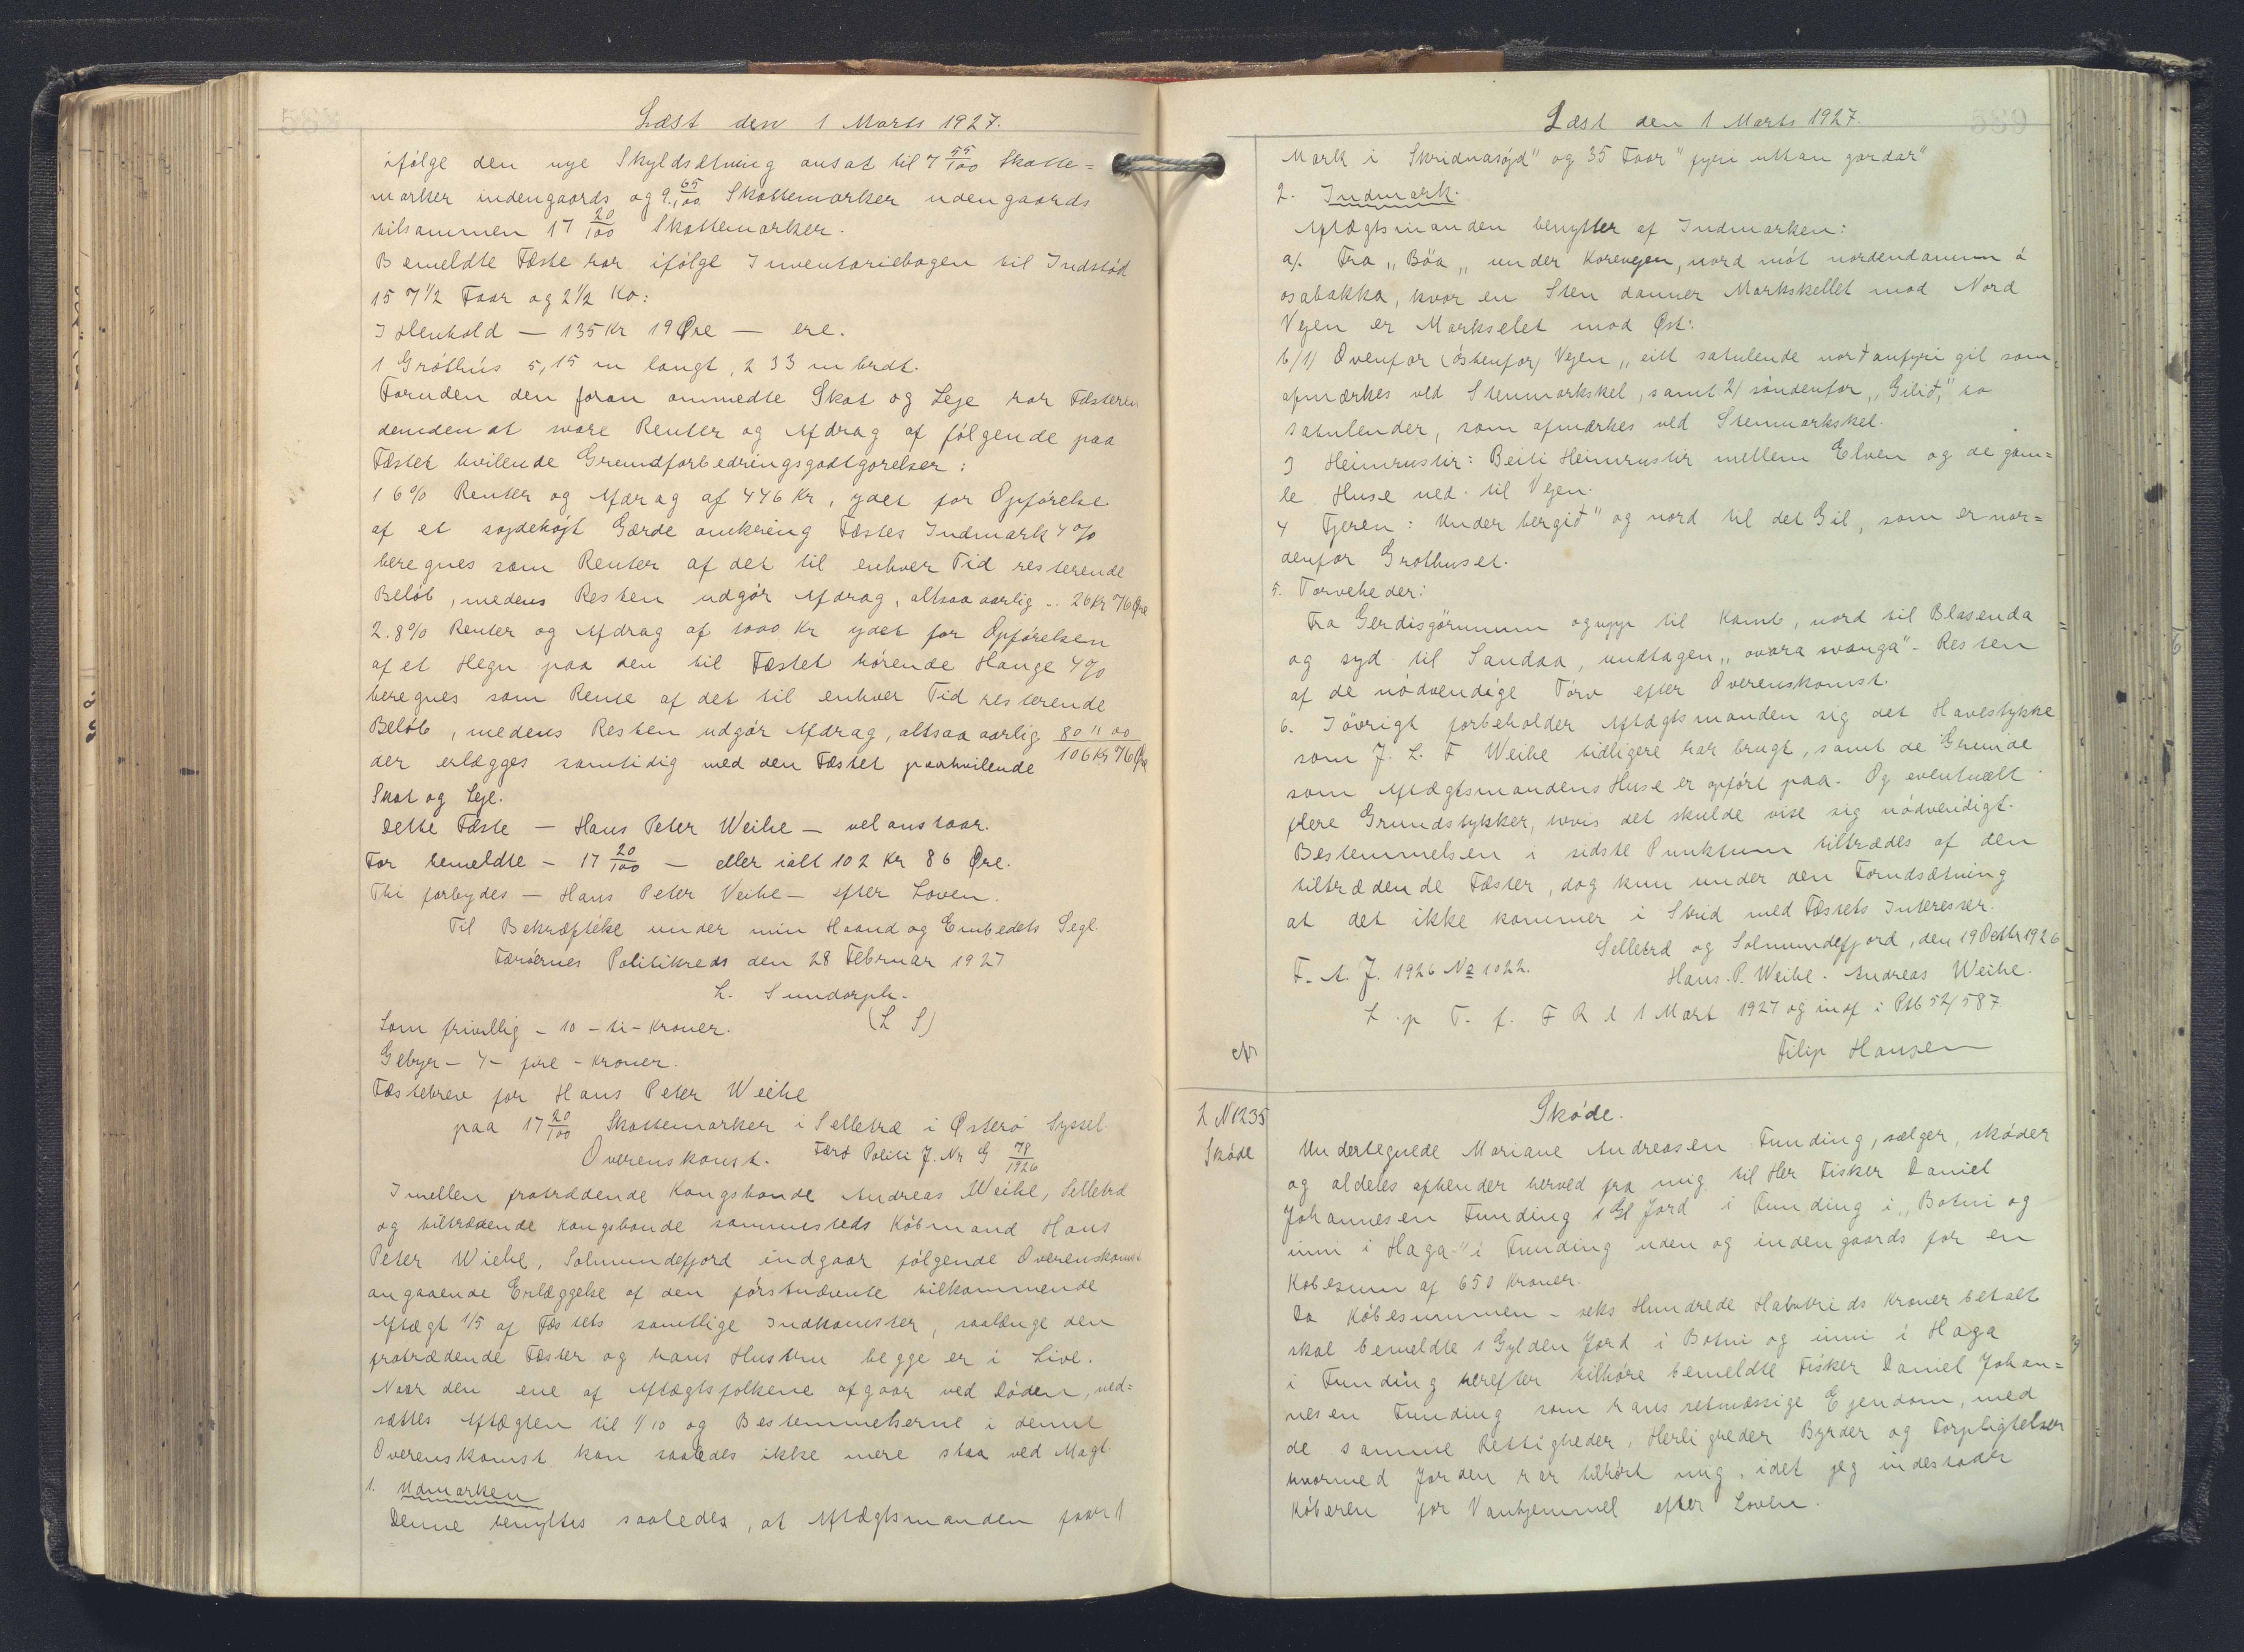 Læst den 1 Marts 1927.
ifølge den nye Skyldsetning ansat til 7 55/100 Skatte=
marker indengaards og 9 65/100 Skattemarker udengaards
tilsammen 17 20/100 Skattemarker.
Bemeldte Fæste har ifølge Inventariebogen til Indstød
157 1/2 Faar og 2 1/2 Ko:
I Henhold — 135 Kr 19 Øre — ere.
1 Gróthús 5,15 m langt, 2 33 m bredt.
Foruden den foran ommedte Skat og Leje har Fæsteren
demden at svare Renter og Afdrag af følgende paa
Fæstet hvilende Grundforbedringsgodtgørelser:
1 6% Renter og Afdrag af 446 Kr, ydet for Opførelse
af et sojdehøjt Gærde omkring Fæstes Indmark 4%
beregnes som Renter af det til enhver Tid resterende
Beløb, medens Resten udgør Afdrag, altsaa aarlig .. 26 Kr 76 Øre
2. 8% Renter og Afdrag af 1000 Kr ydet for Opførelsen
af et Hegn paa den til Fæstet hørende Hauge 4%
beregnes som Rente af det til enhver Tid resterende
Beløb, medens Resten udgør Afdrag, altsaa aarlig 80 " 00
der erlægges samtidig med den Fæstet paahvilende 106 Kr 76 Øre
Skat og Leje.
Dette Fæste — Hans Peter Weihe — vel anstaar.
For bemeldte — 17 20/100 — eller ialt 102 Kr 86 Øre.
Thi forbydes — Hans Peter Veihe — efter Loven.
Til Bekræftelse under min Haand og Embedets Segl.
Færøernes Politikreds den 28 Februar 1927
L. Sundorph.
Som frivillig - 10 - ti - Kroner. (L S)
Gebyr - 4 - fire - Kroner.
Fæstebrev for Hans Peter Weihe
paa 17 20/100 Skattemarker i Selletræ i Østerø Syssel
Overenskomst. Færø Politi J. Nr G 78/1926
Imellem fratrædende Kongsbonde Andreas Weihe, Selletræ
og tiltrædende Kongsbonde sammesteds Købmand Hans
Peter Wiehe, Solmundefjord indgaar følgende Overenskomst
angaaende Erlæggelse af den førstnævnte tilkommende
Aftægt 1/5 af Fæstets samtlige Indkomster, saalænge den
fratrædende Fæster og hans Hustru begge er i Live.
Naar den ene af Aftægtsfolkene afgaar ved Døden, ned=
sættes Aftægten til 1/10 og Bestemmelserne i denne
Overenskomst kan saaledes ikke mere staa ved Magt.
1. Udmarken
Denne benyttes saaledes, at Aftægtsmanden faar 1
Læst den 1 Marts 1927.
Mark i Skridnasøjd" og 35 Faar "fyri uttan gardar"
2. Indmark.
Aftægtsmanden benytter af Indmarken:
a/. Fra „Bøa„ under Korevejen, nord mót nordendanum á
osabakka, hvor en Sten danner Markskellet mod Nord
Vejen er Markselet mod Øst:
b/1) Ovenfor (østenfor) Vejen „eitt satulende norðanfyri gil som
afmærkes ved Stenmarkskel, samt 2/ søndenfor „Gilið," to
satulender, som afmærkes ved Stenmarkskel.
3 Heimrustir: Beiti Heimrustir mellem Elven og de gam=
le Huse ned til Vejen.
4 Fjeren: Under bergið" og nord til det Gil, som er nor=
denfor Grothuset.
5. Tørveheder:
Fra Gerdisgörunum og upp til Kamb, nord til Blasenda
og syd til Sandaa, undtagen „ovara svanga" - Resten
af de nødvendige Tørv efter Overenskomst.
6. Iøvrigt forbeholder Aftægtsmanden sig det Havestykke
som J. L. F Weihe tidligere har brugt, samt de Grunde
som Aftægtsmandens Huse er opført paa. Og eventuelt
flere Grundstykker, hvis det skulde vise sig nødvendigt.
Bestemmelsen i sidste Punktum tiltrædes af den
tiltrædende Fæster, dog kun under den Forudsætning
at det ikke kommer i Strid med Fæstets Interesser.
Selletræ og Solmundefjord, den 19 Octbr 1926
F. A. J. 1926 No 1022. Hans. P. Weihe. Andreas Weihe.
L. p T. f. F R d 1 Mart 1927 og indf i Ptb 52/587
Filip Hansen
L N 1235
Skøde
Skøde.
Undertegnede Mariane Andreasen Funding, sælger, skøder
og aldeles afhender herved fra mig til Her Fisker Daniel
Johannesen Funding 1 Gl Jord i Funding i „Botni og
inni i Haga" i Funding uden og indengaards for en
Købesum af 650 Kroner.
Da Købesummen - seks Hundrede Halvtreds Kroner betalt
skal bemeldte 1 Gylden Jord i Botni og inni i Haga
i Funding herefter tilhøre bemeldte Fisker Daniel Johan=
nesen Funding som hans retmæssige Ejendom, med
de samme Rettigheder, Herligheder Byrder og Forpligtelser
hvormed Jorden har tilhørt mig, idet jeg indestaar
Køberen for Vanhjemmel efter Loven.